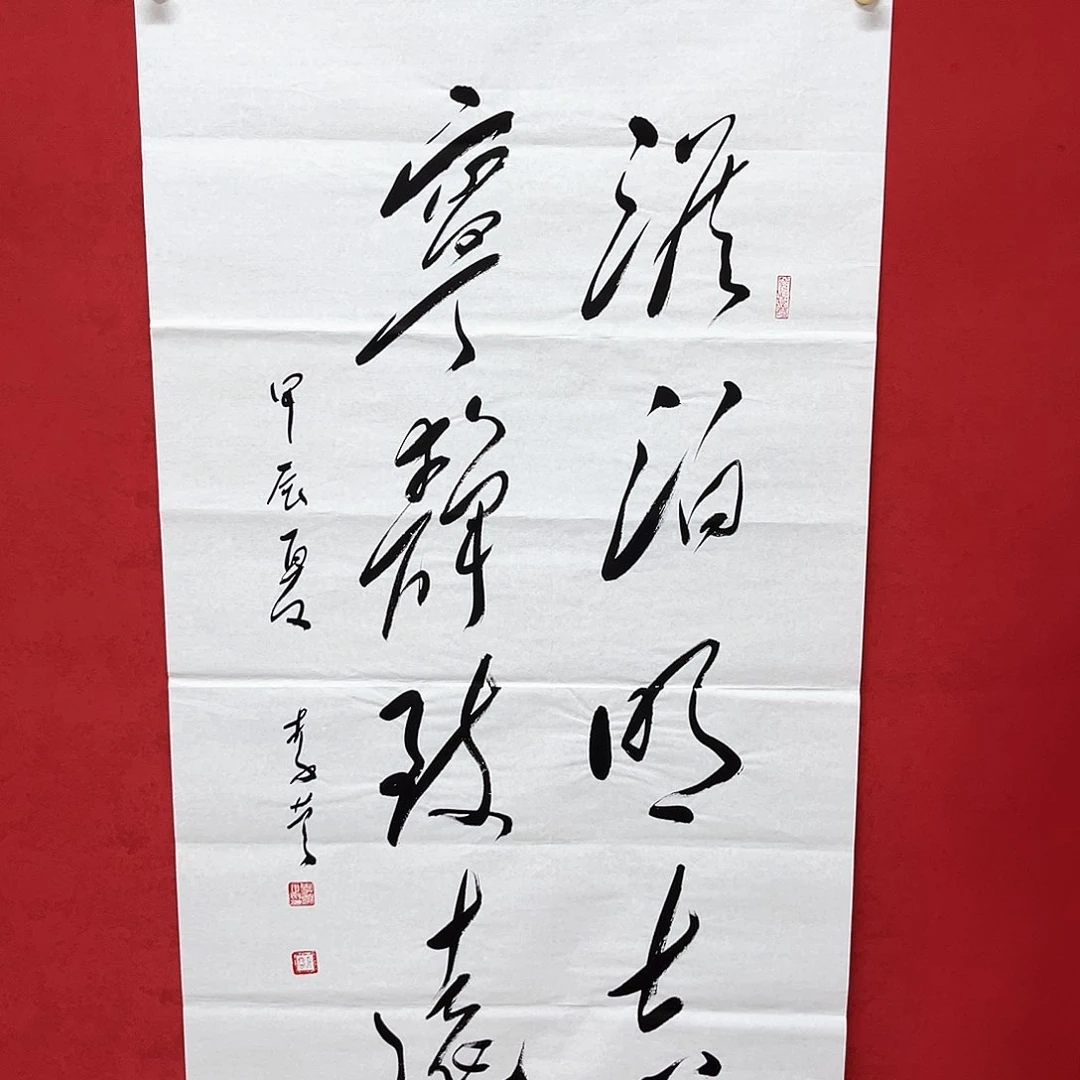 淡泊明志
寧靜致遠
甲辰夏 李